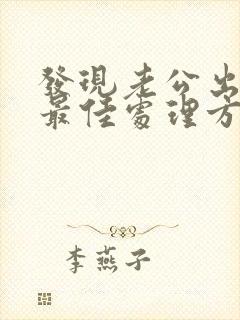 發現老公出
最佳處理方
李燕子